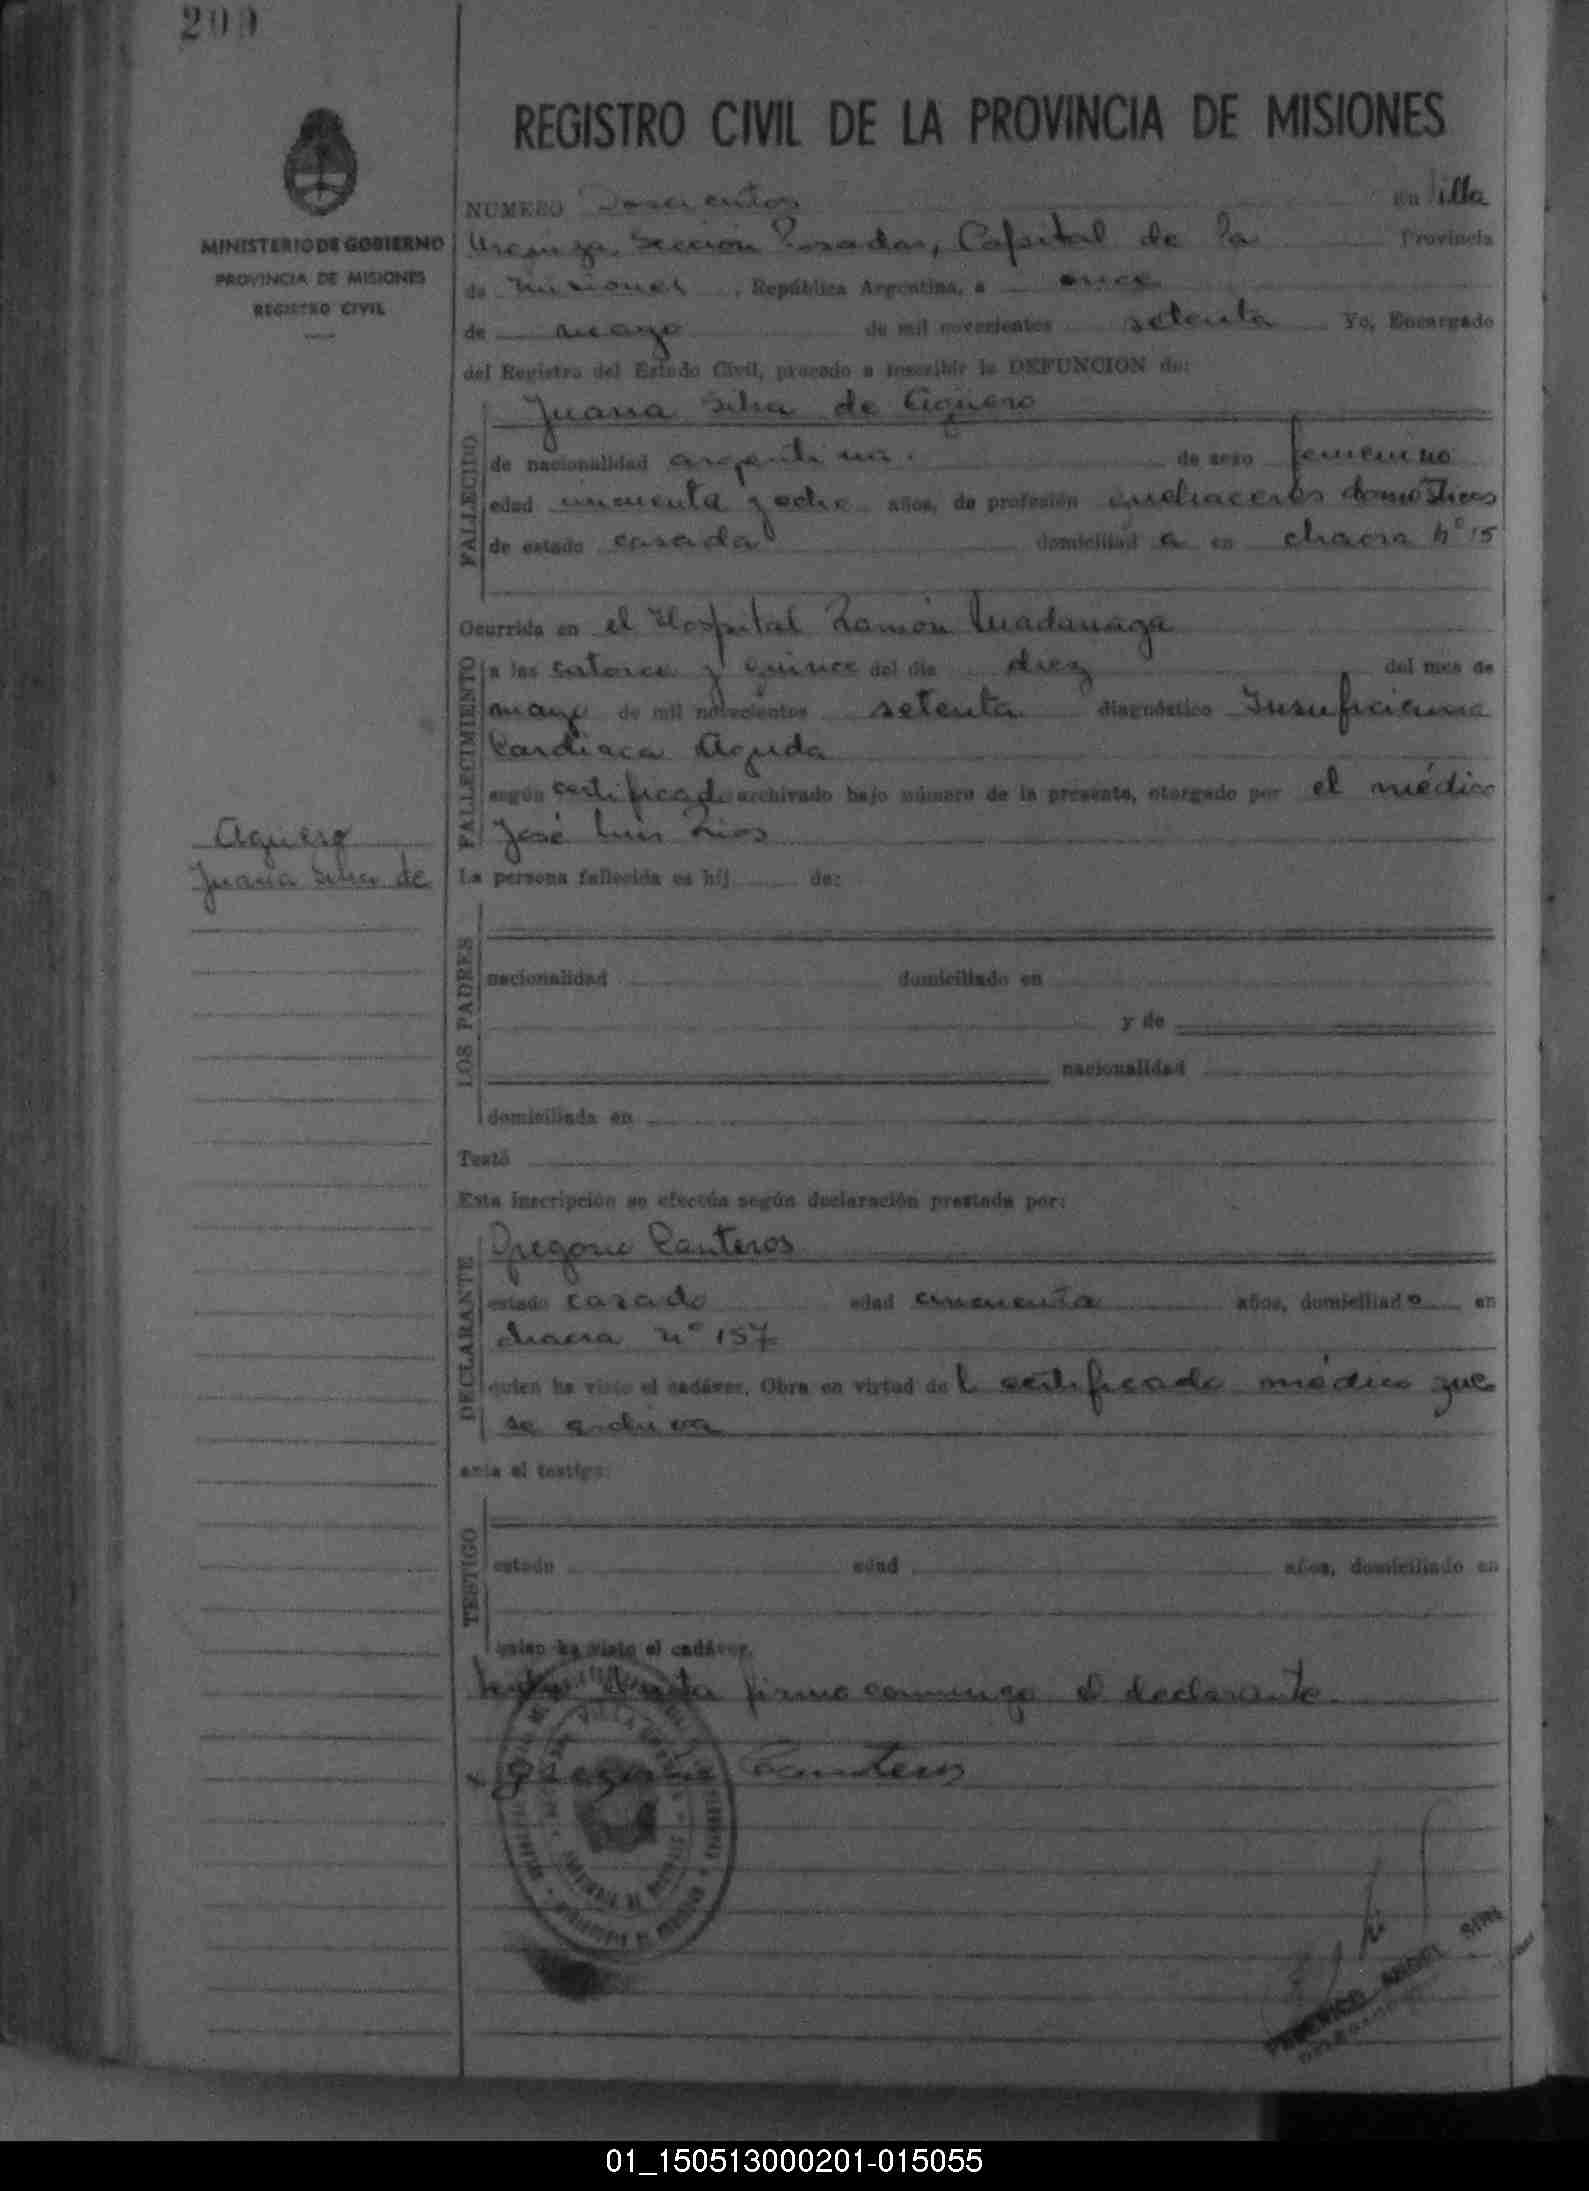 200
REGISTRO CIVIL DE LA PROVINCIA DE MISIONES
MINISTERIO DE GOBIERNO
PROVINCIA DE MISIONES
REGISTRO CIVIL
NUMERO Doscientos en Villa
Urquiza, Sección Posadas, Capital de la Provincia
de Misiones, República Argentina, a once
de mayo de mil novecientos setenta Yo, Encargado
del Registro del Estado Civil, procedo a inscribir la DEFUNCION de:
FALLECIDO
Juana Silva de Agüero
de nacionalidad argentina. de sexo femenino
edad cincuenta y ocho años, de profesión quehaceres domésticos
de estado casada domiciliad a en chacra nº 15
Ocurrida en el Hospital Ramón Madariaga
FALLECIMIENTO
a las catorce y quince del día diez del mes de
mayo de mil novecientos setenta diagnóstico Insuficiencia
Cardiaca Aguda
según certificado archivado bajo número de la presente, otorgado por el médico
José Luis Rios
Agüero
Juana Silva de
La persona fallecida es hij de:
LOS PADRES
nacionalidad domiciliado en
y de
nacionalidad
domiciliada en
Testó
Esta inscripción se efectúa según declaración prestada por:
DECLARANTE
Gregorio Canteros
estado casado edad cincuenta años, domiciliado en
chacra nº 157
quien ha visto el cadáver. Obra en virtud del certificado médico que
se archiva
ante el testigo:
TESTIGO
estado edad años, domiciliado en
quien ha visto el cadáver.
acta firmo conmigo el declarante
Gregorio Canteros
PROVINCIA DE MISIONES
FEDERICO ANGEL
01_150513000201-015055